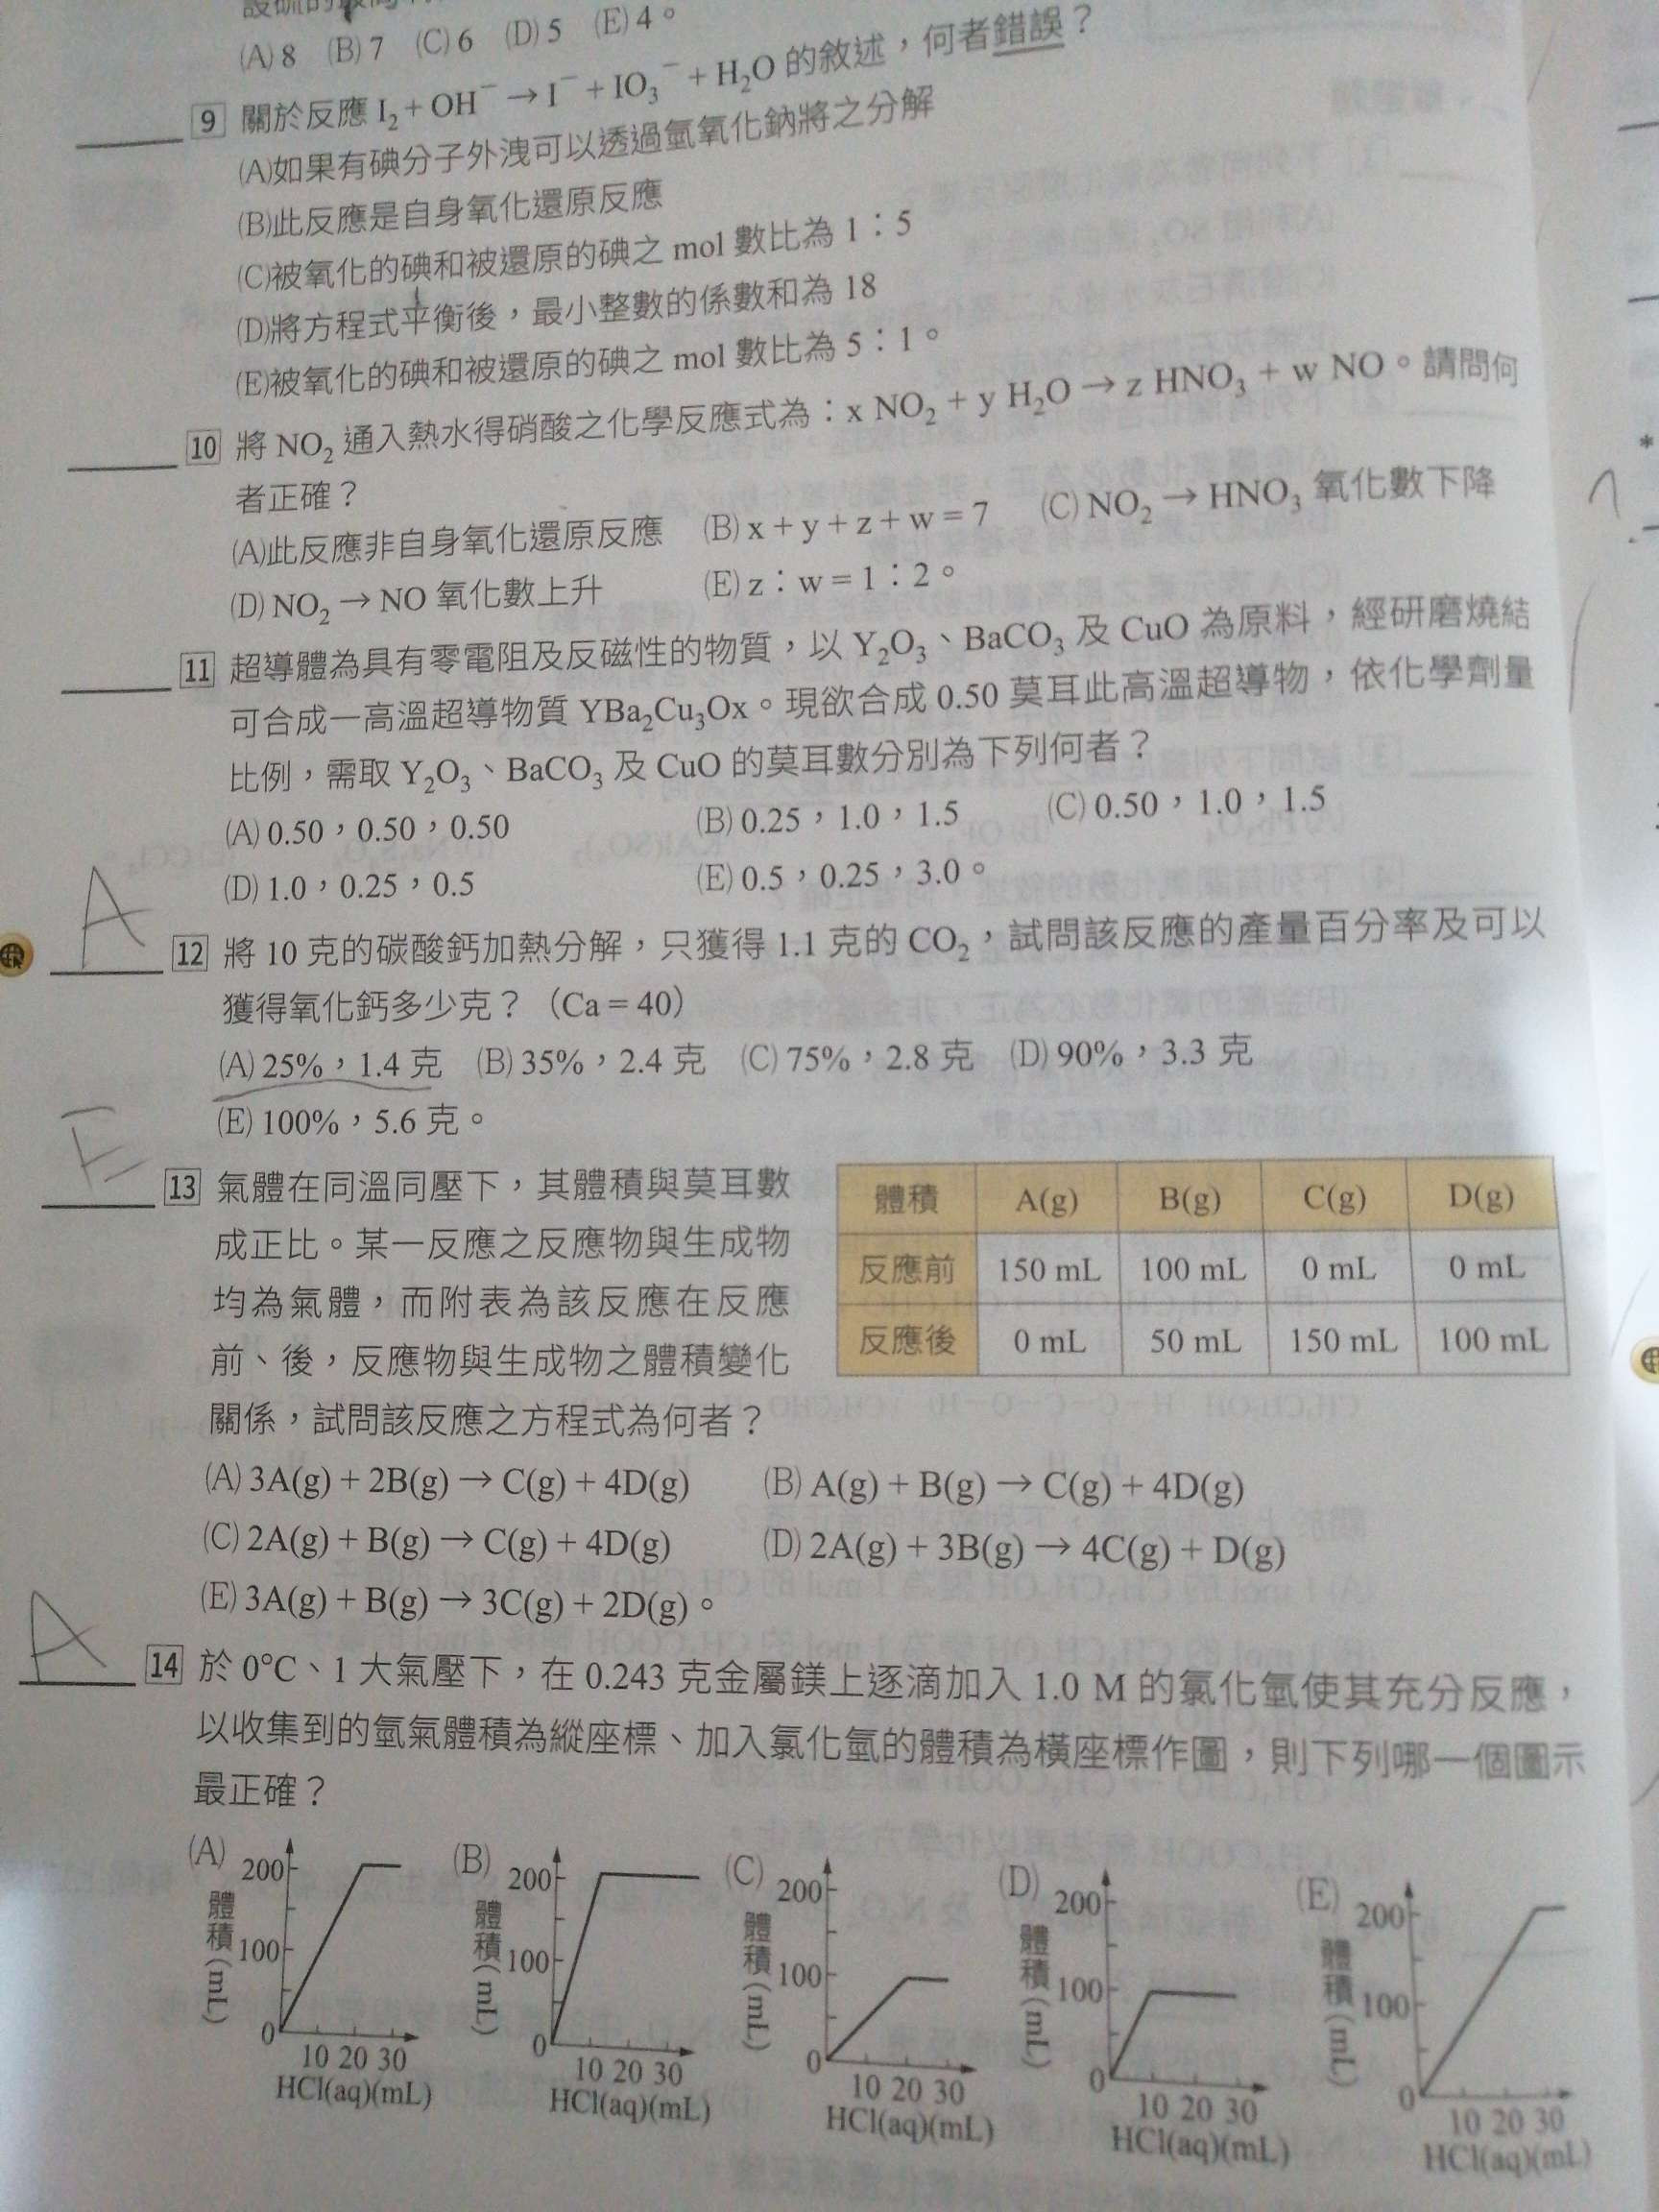 (A) 8 (B) 7 (C) 6 (D) 5 (E) 4。
9 關於反應 I₂ + OH⁻ → I⁻ + IO₃⁻ + H₂O 的敘述，何者錯誤？
(A)如果有碘分子外洩可以透過氫氧化鈉將之分解
(B)此反應是自身氧化還原反應
(C)被氧化的碘和被還原的碘之 mol 數比為 1：5
(D)將方程式平衡後，最小整數的係數和為 18
(E)被氧化的碘和被還原的碘之 mol 數比為 5：1。
10 將 NO₂ 通入熱水得硝酸之化學反應式為：x NO₂ + y H₂O → z HNO₃ + w NO。請問何
者正確？
(A)此反應非自身氧化還原反應 (B) x + y + z + w = 7 (C) NO₂ → HNO₃ 氧化數下降
(D) NO₂ → NO 氧化數上升 (E) z：w = 1：2。
11 超導體為具有零電阻及反磁性的物質，以 Y₂O₃、BaCO₃ 及 CuO 為原料，經研磨燒結
可合成一高溫超導物質 YBa₂Cu₃Ox。現欲合成 0.50 莫耳此高溫超導物，依化學劑量
比例，需取 Y₂O₃、BaCO₃ 及 CuO 的莫耳數分別為下列何者？
(A) 0.50，0.50，0.50 (B) 0.25，1.0，1.5 (C) 0.50，1.0，1.5
(D) 1.0，0.25，0.5 (E) 0.5，0.25，3.0。
A
12 將 10 克的碳酸鈣加熱分解，只獲得 1.1 克的 CO₂，試問該反應的產量百分率及可以
獲得氧化鈣多少克？（Ca = 40）
(A) 25%，1.4 克 (B) 35%，2.4 克 (C) 75%，2.8 克 (D) 90%，3.3 克
(E) 100%，5.6 克。
E
13 氣體在同溫同壓下，其體積與莫耳數
成正比。某一反應之反應物與生成物
均為氣體，而附表為該反應在反應
前、後，反應物與生成物之體積變化
關係，試問該反應之方程式為何者？
體積 A(g) B(g) C(g) D(g)
反應前 150 mL 100 mL 0 mL 0 mL
反應後 0 mL 50 mL 150 mL 100 mL
(A) 3A(g) + 2B(g) → C(g) + 4D(g) (B) A(g) + B(g) → C(g) + 4D(g)
(C) 2A(g) + B(g) → C(g) + 4D(g) (D) 2A(g) + 3B(g) → 4C(g) + D(g)
(E) 3A(g) + B(g) → 3C(g) + 2D(g)。
A
14 於 0°C、1 大氣壓下，在 0.243 克金屬鎂上逐滴加入 1.0 M 的氯化氫使其充分反應，
以收集到的氫氣體積為縱座標、加入氯化氫的體積為橫座標作圖，則下列哪一個圖示
最正確？
(A) 200 100 0 體積(mL) 10 20 30 HCl(aq)(mL)
(B) 200 100 0 體積(mL) 10 20 30 HCl(aq)(mL)
(C) 200 100 0 體積(mL) 10 20 30 HCl(aq)(mL)
(D) 200 100 0 體積(mL) 10 20 30 HCl(aq)(mL)
(E) 200 100 0 體積(mL) 10 20 30 HCl(aq)(mL)